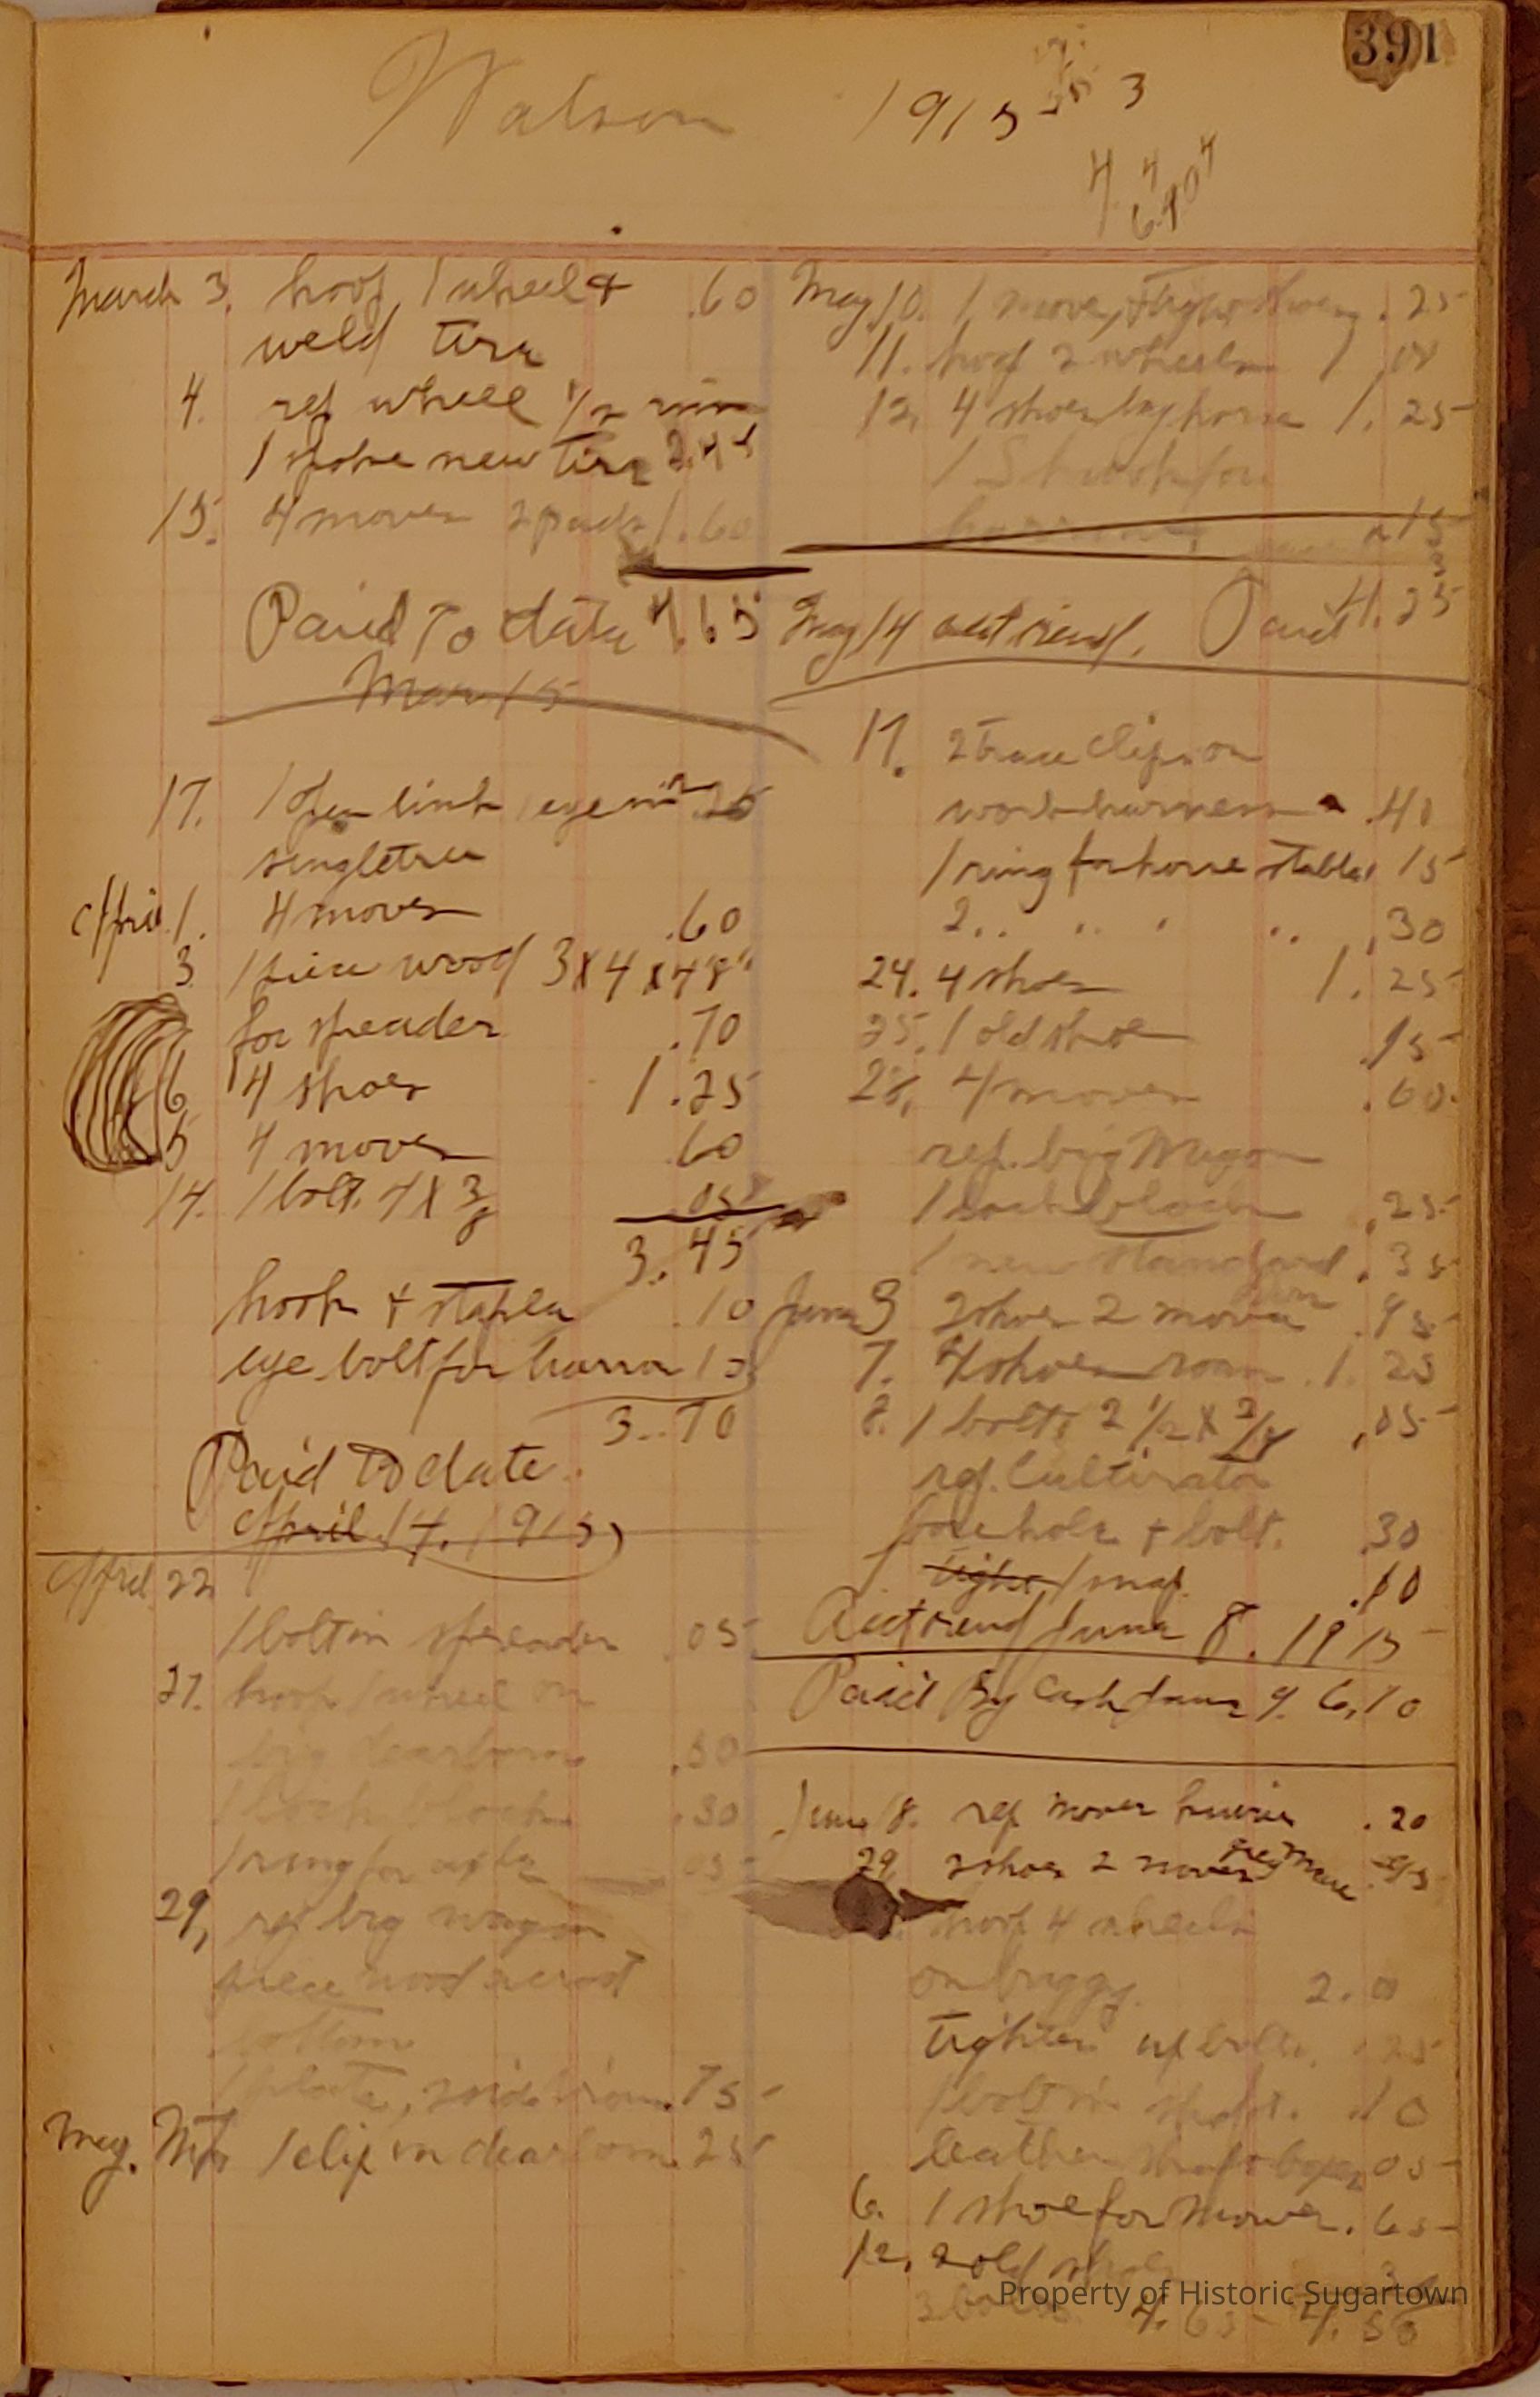 391
Watson 1915 3
4 4
6.404
March 3. hoof 1 wheel &
weld tire .60
4. rep wheel 1/2 rim
1 spoke new tire 2.45
15. 4 moves 2 pads 1.60
Paid To date 4.65
Mar 15
17. 1 open link eye in 25
singletree
April 1. 4 moves .60
3 1 piece wood 3X4X48"
for spreader .70
6 4 shoes 1.25
5 4 moves 60
14. 1 bolt 4 X 3/8 .05
3.45
hook & staple .10
eye bolt for harrow 15
3.70
Paid To date
April 14. 1915
April 22
1 bolt in spreader .05
27. hoof 1 wheel on
big dearborn .50
1 lock block .30
1 ring for axle 05
29, rep big wagon
piece wood across
bottom
1 plate, side .75
May. 1 clip on dearborn .25
May 10. 1 move, .25
11. hoof 2 wheels 1.00
12. 4 shoes bay horse 1.25
1 S hook for
.15
4.25
May 14 act rend. Paid
17. 2 trace clips on
work harness .40
1 ring for horse stable 15
2 .. .. .. .. .30
24. 4 shoes 1.25
25. 1 old shoe .15
28. 4 moves .60
rep. big Wagon
1 lock block .25
1 new standard .35
June 3 2 shoes 2 moves .95
7. 4 shoes roan 1.25
8. 1 bolt 2 1/2 X 3/8 .05
rep. Cultivator
bore hole & bolt. .30
1 snap. .10
Act rend June 8. 1915
Paid By Cash June 9. 6.10
June 18. rep mower .20
29 2 shoes 2 moves grey mare .95
hoof 4 wheels
on buggy. 2.0
tighten up bolts. .25
1 bolt in shaft. .10
leather shaft 05
6. 1 shoe for Mower .65
12. 2 old shoes
4.65 4.50
Property of Historic Sugartown